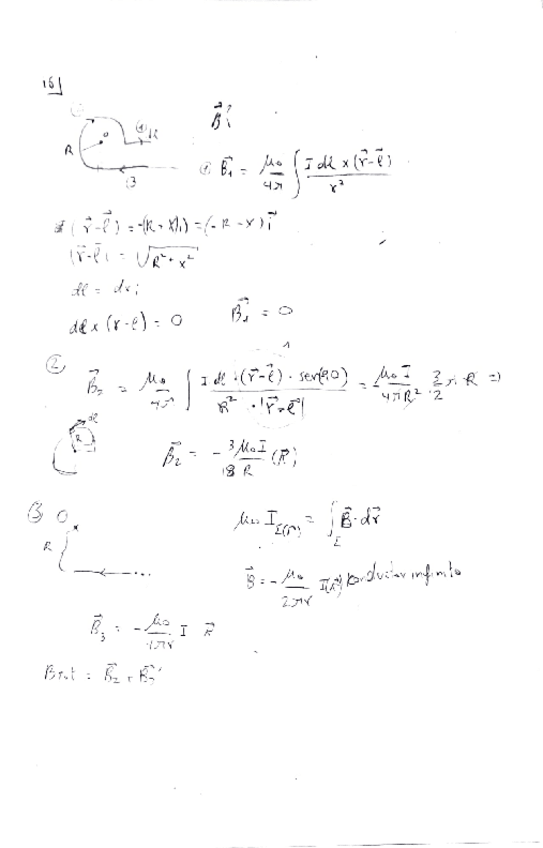 16|
R
O
④ R
(3
B⃗?
① B⃗₁ = μ₀/4π ∫ I dl × (r⃗-l⃗) / r²
(r⃗-l⃗) = -(R+X)(i) = (-R-x) i⃗
|r⃗-l⃗| = √R²+x²
dl = dx i
dl × (r-l) = 0 B⃗₁ = 0
② B⃗₂ = μ₀/4π ∫ I dl · (r⃗-l⃗) · sen(90) / R² · |r⃗-l⃗| = μ₀ I / 4πR² 3/2 π R =>
dl
R
B⃗₂ = - 3 μ₀ I / 8 R (k⃗)
③ O
R
μ₀ I_Σ(Γ) = ∫_Σ B⃗ · dr⃗
B⃗ = - μ₀ / 2πr I(k⃗) conductor infinito
B⃗₃ = - μ₀ / 4πr I k⃗
B tot = B⃗₂ + B⃗₃